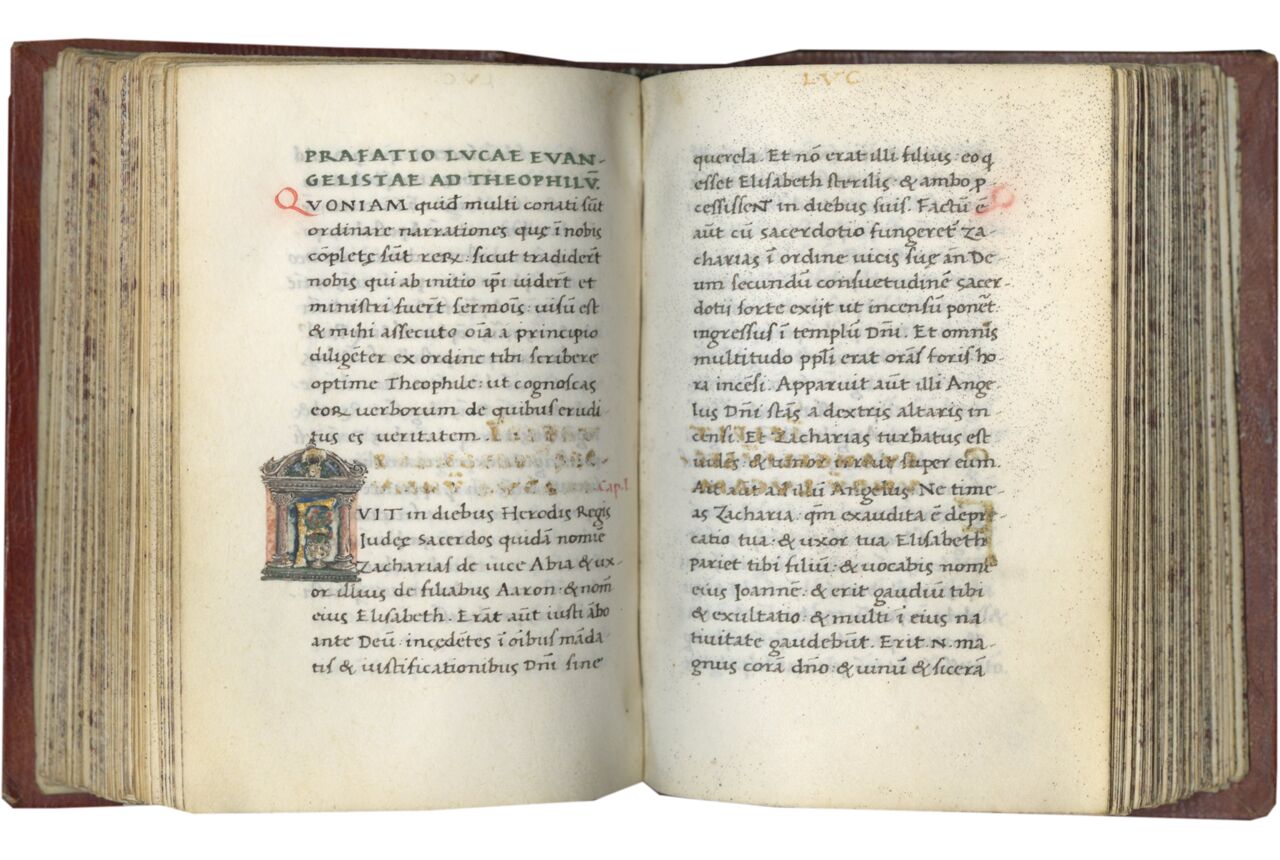 PRAFATIO LVCAE EVAN-
GELISTAE AD THEOPHILV̄.
QVONIAM quid̄ multi conati sūt
ordinare narrationes quę ī nobis
cōpletę sūt reꝝ. sicut tradidert̄
nobis qui ab initio ip̄i uidert̄ et
ministri fuert̄ sermoīs: uisū est
& mihi assecuto oīa a principio
diligēter ex ordine tibi scribere
optime Theophile: ut cognoscas
eoꝝ uerborum de quibus erudi-
tus es ueritatem.
Cap. I.
FVIT in diebus Herodis Regis
Iudeę sacerdos quidā nomīe
Zacharias de uice Abia & ux-
or illius de filiabus Aaron & nom̄
eius Elisabeth. Erāt aūt iusti ābo
ante Deū incedētes ī oībus māda-
tis & iustificationibus Dn̄i sine
LVC
querela. Et nō erat illi filius eo q̄
esset Elisabeth sterilis & ambo p̄
cessisseNT in diebus suis. Factū ē
aūt cū sacerdotio fungeret̄ Za-
charias ī ordine uicis suę ān De-
um secundū consuetudinē sacer-
dotii sorte exijt ut incensū ponet̄.
ingressus ī templū Dn̄i. Et omnis
multitudo pp̄li erat orās foris ho-
ra incēsi. Apparuit aūt illi Ange-
lus Dn̄i stās a dextris altaris in-
censi. Et Zacharias turbatus est
uidēs & timor irruit super eum.
Ait aūt ad illū Angelus Ne time-
as Zacharia. qm̄ exaudita ē depre
catio tua & uxor tua Elisabeth
pariet tibi filiū & uocabis nomē
eius Joannē. & erit gaudiū tibi
& exultatio & multi ī eius na
tiuitate gaudebūt. Erit N. ma-
gnus corā dn̄o & uinū & sicerā